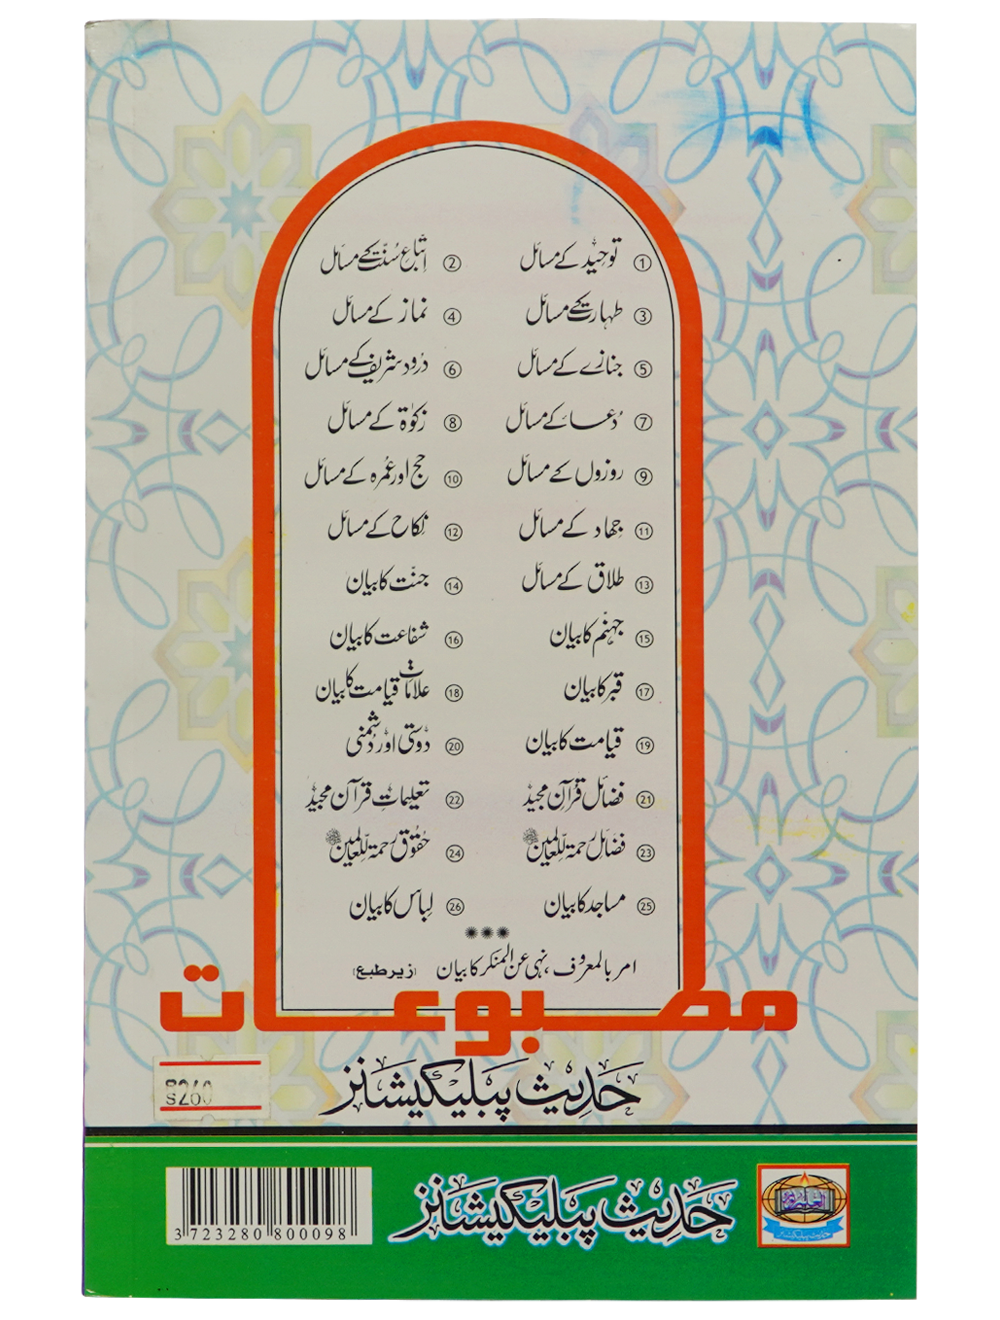 ① توحید کے مسائل ② اتباع سُنت کے مسائل
③ طہارت کے مسائل ④ نماز کے مسائل
⑤ جنازے کے مسائل ⑥ درود شریف کے مسائل
⑦ دُعا کے مسائل ⑧ زکوٰۃ کے مسائل
⑨ روزوں کے مسائل ⑩ حج اور عُمرہ کے مسائل
⑪ جہاد کے مسائل ⑫ نکاح کے مسائل
⑬ طلاق کے مسائل ⑭ جنت کا بیان
⑮ جہنم کا بیان ⑯ شفاعت کا بیان
⑰ قبر کا بیان ⑱ علامات قیامت کا بیان
⑲ قیامت کا بیان ⑳ دوستی اور دشمنی
㉑ فضائل قرآن مجید ㉒ تعلیمات قرآن مجید
㉓ فضائل رحمۃ للعالمین ﷺ ㉔ حقوق رحمۃ للعالمین ﷺ
㉕ مساجد کا بیان ㉖ لباس کا بیان
امر بالمعروف، نہی عن المنکر کا بیان (زیر طبع)
مطبوعات
حدیث پبلیکیشنز
حدیث پبلیکیشنز
3 723280 800098
حدیث پبلیکیشنز